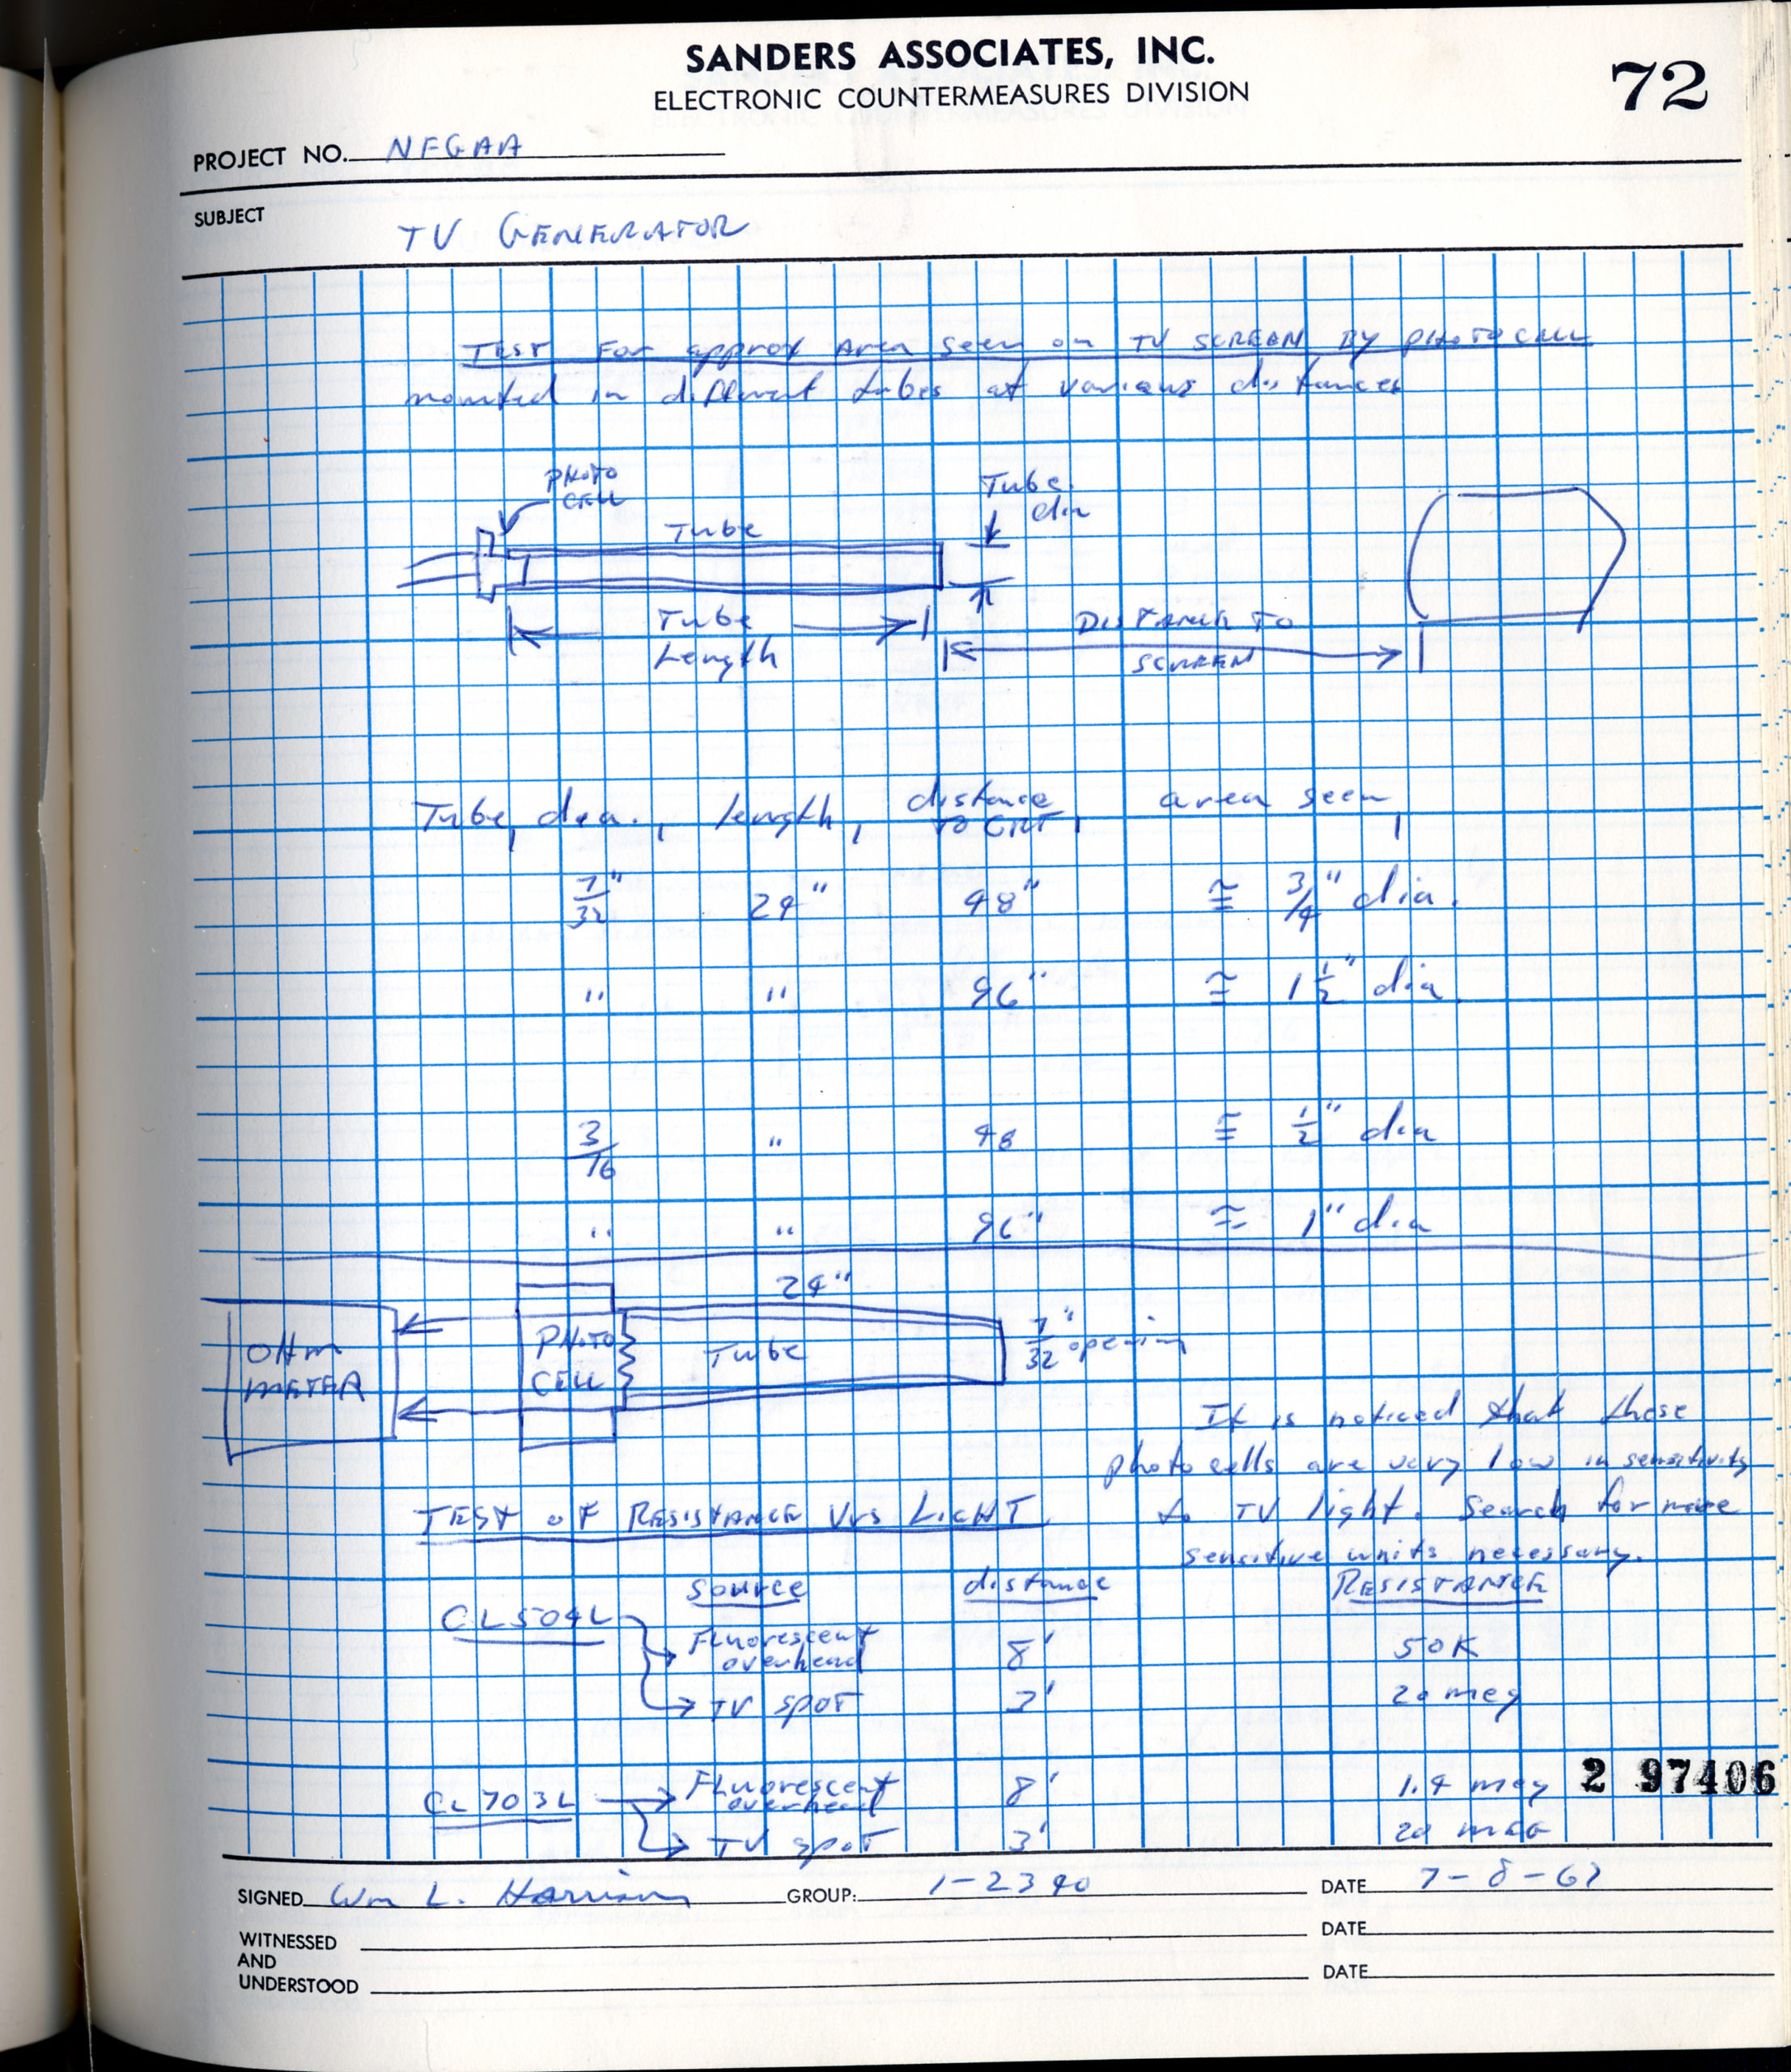 SANDERS ASSOCIATES, INC.
ELECTRONIC COUNTERMEASURES DIVISION
72
PROJECT NO. NFGAA
SUBJECT
TV GENERATOR
TEST For approx Area seen on TV SCREEN BY PHOTO CELL
mounted in different tubes at various distances
PHOTO
CELL
Tube
Tube
dia
Tube
Length
DISTANCE TO
SCREEN
Tube, dia., length, distance TO CRT, area seen,
7/32" 24" 48" ≅ 3/4" dia.
" " 96" ≅ 1 1/2" dia.
3/16 " 48 ≅ 1/2" dia
" " 96" ≅ 1" dia
24"
OHM
METER
PHOTO
CELL
Tube
7/32" opening
It is noticed that these
photo cells are very low in sensitivity
to TV light. Search for more
sensitive units necessary.
TEST OF RESISTANCE Vrs LIGHT
source distance RESISTANCE
CL504L
Fluorescent overhead 8' 50K
TV SPOT 3' 20 meg
CL703L
Fluorescent overhead 8' 1.4 meg
TV SPOT 3' 20 meg
2 97406
SIGNED Wm L. Harrison GROUP: 1-2340 DATE 7-8-67
WITNESSED
AND
UNDERSTOOD
DATE
DATE